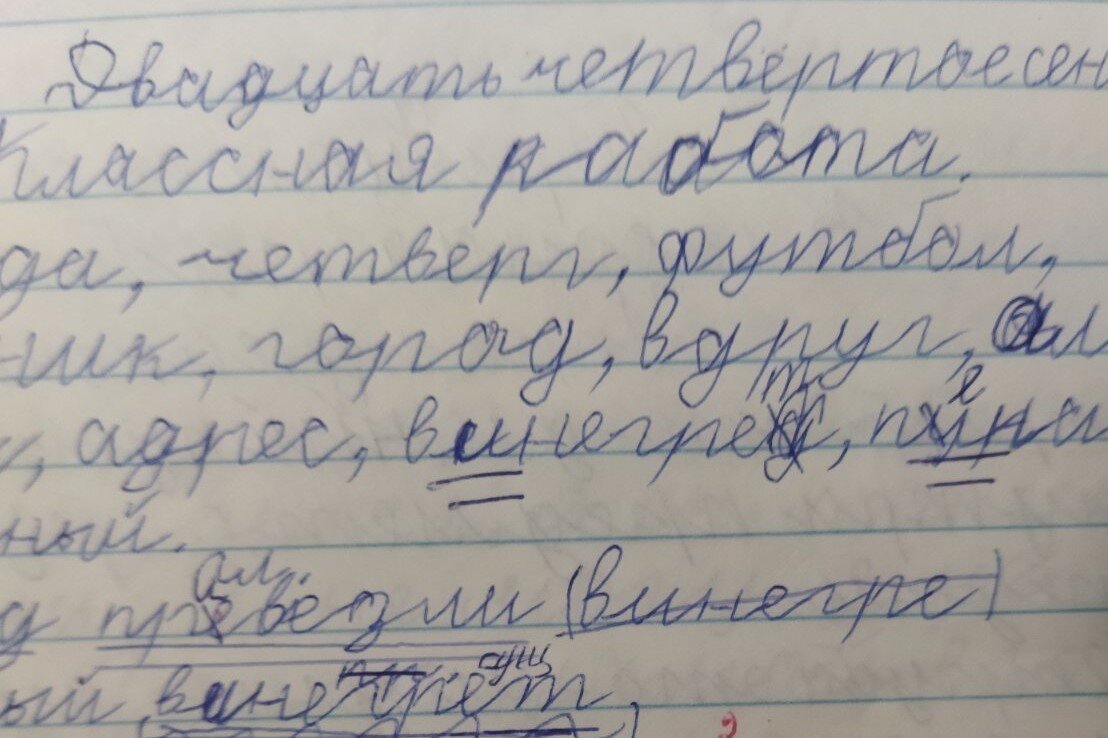 Двадцать четвёртое сен
Классная работа.
да, четверг, футбол,
ник, город, вдруг,
, адрес, винегрет,
ный.
д привезли (винегре)
ый винегрет,